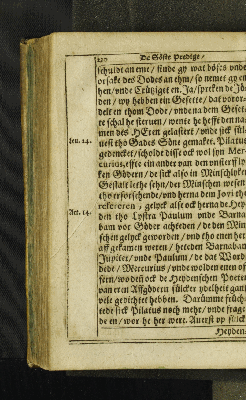 220 De Söste Predige/
schuldt an eme/ finde gy wat böses vnde
orsake des Dodes an ehm/ so nemet gy en
hen/ vnde Crützget en. Ja/ spreken de Jö
den/ wy hebben ein Gesette/ dat voror
delt en thom Dode/ vnde na dem Geset
te schal he steruen/ wente he hefft den na
men des HEren gelastert/ vnde sick sül
Leu. 24. uest tho Gades Söne gemaket. Pilatus
gedencket/ scholde disse ock wol syn Mer
curius, effte ein ander van den
ken Göddern/ de sick also in Minschlyker
Gestalt lethe sehn/ der Minschen wesent
tho erforschende/ vnde herna dem Jovi tho
refereren, gelyck alse ock herna de Hey
Act. 14. den tho Lystra Paulum vnde Barna
bam vor Gödder achteden/ de den Min
schen gelyck geworden/ vnd tho enen her
aff gekamen weren/ heteden Barnaban
Jupiter/ vnde Paulum/ de dat Wordt
hedde/ Mercurius/ vnde wolden enen of
fern/ wo den ock de Heydenschen Poeten
van eren Affgödern sülcker ydelheit gantz
vele gedichtet hebben. Darümme früch
tede sick Pilatus noch mehr/ vnde frage
de en/ wor he her were. Auerst vp sülck
Heyden-